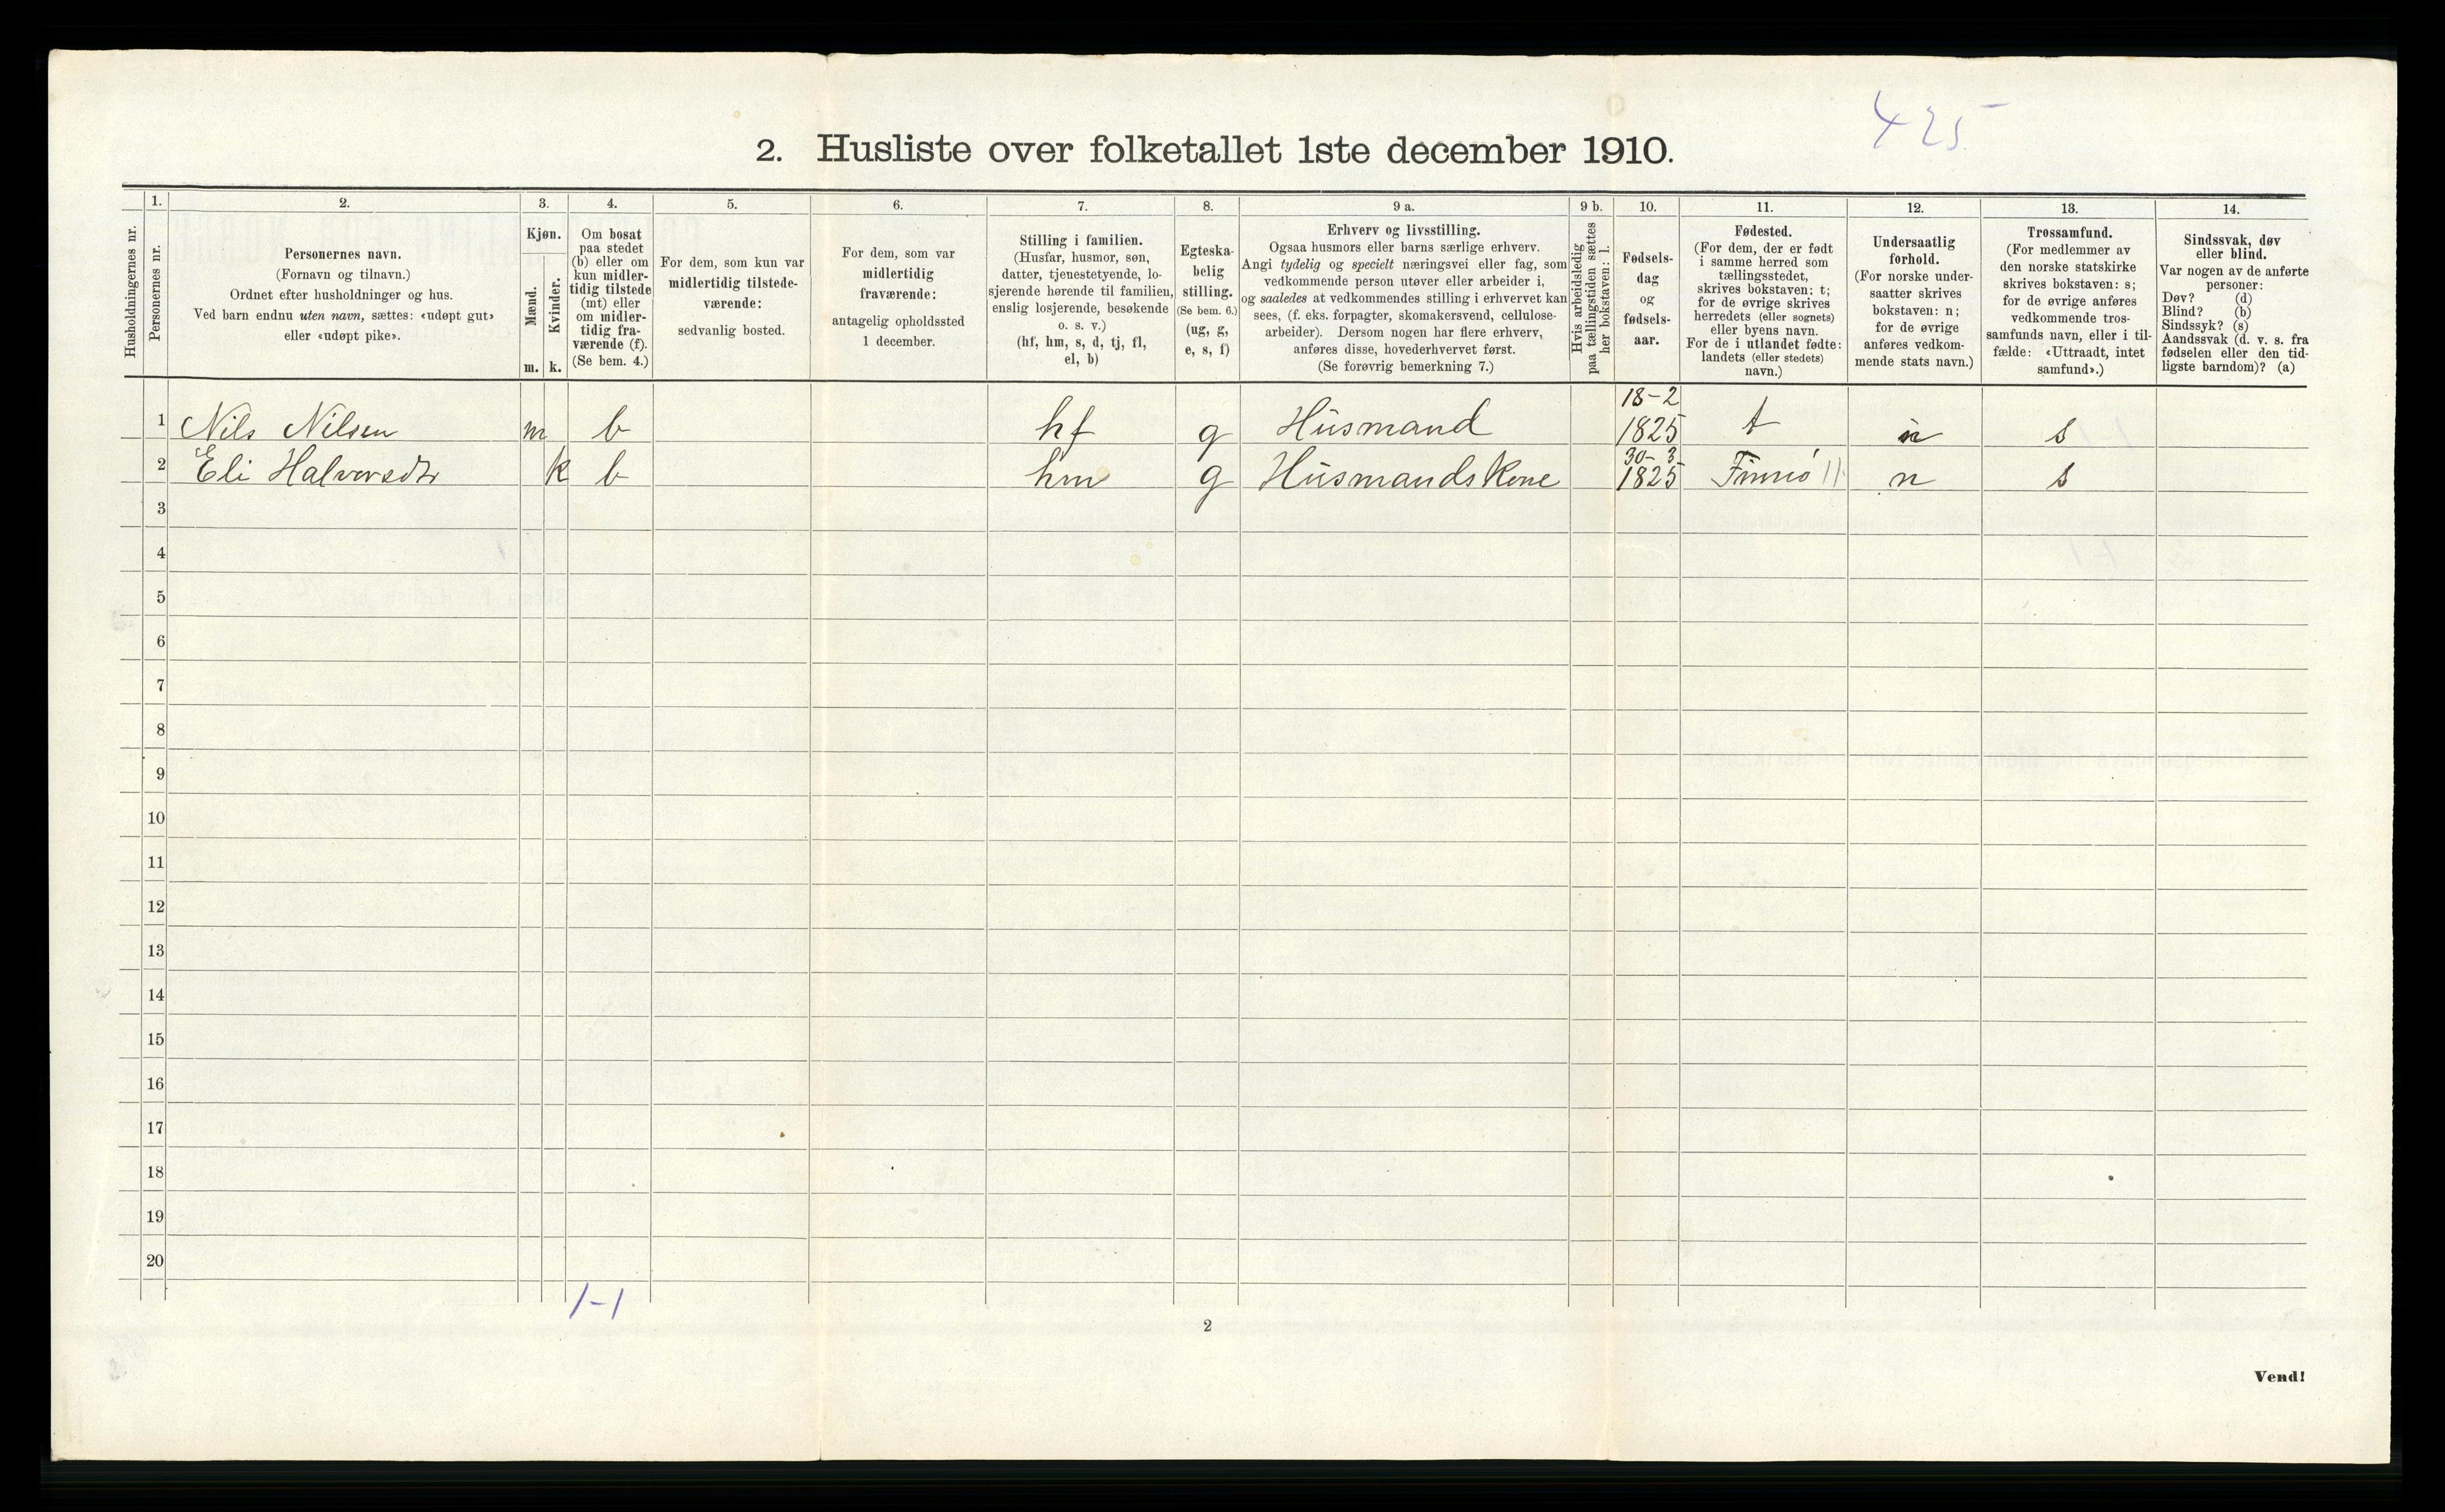 425
2. Husliste over folketallet 1ste december 1910.
1. 2. 3. 4. 5. 6. 7. 8. 9 a. 9 b. 10. 11. 12. 13. 14.
Husholdningernes nr.
Personernes nr.
Personernes navn.
(Fornavn og tilnavn.)
Ordnet efter husholdninger og hus.
Ved barn endnu uten navn, sættes: «udøpt gut»
eller «udøpt pike».
Kjøn.
Mænd.
Kvinder.
m. k.
Om bosat
paa stedet
(b) eller om
kun midler-
tidig tilstede
(mt) eller
om midler-
tidig fra-
værende (f).
(Se bem. 4.)
For dem, som kun var
midlertidig tilstede-
værende:
sedvanlig bosted.
For dem, som var
midlertidig
fraværende:
antagelig opholdssted
1 december.
Stilling i familien.
(Husfar, husmor, søn,
datter, tjenestetyende, lo-
sjerende hørende til familien,
enslig losjerende, besøkende
o. s. v.)
(hf, hm, s, d, tj, fl,
el, b)
Egteska-
belig
stilling.
(Se bem. 6.)
(ug, g,
e, s, f)
Erhverv og livsstilling.
Ogsaa husmors eller barns særlige erhverv.
Angi tydelig og specielt næringsvei eller fag, som
vedkommende person utøver eller arbeider i,
og saaledes at vedkommendes stilling i erhvervet kan
sees, (f. eks. forpagter, skomakersvend, cellulose-
arbeider). Dersom nogen har flere erhverv,
anføres disse, hovederhvervet først.
(Se forøvrig bemerkning 7.)
Hvis arbeidsledig
paa tællingstiden sættes
her bokstaven: l.
Fødsels-
dag
og
fødsels-
aar.
Fødested.
(For dem, der er født
i samme herred som
tællingsstedet,
skrives bokstaven: t;
for de øvrige skrives
herredets (eller sognets)
eller byens navn.
For de i utlandet fødte:
landets (eller stedets)
navn.)
Undersaatlig
forhold.
(For norske under-
saatter skrives
bokstaven: n;
for de øvrige
anføres vedkom-
mende stats navn.)
Trossamfund.
(For medlemmer av
den norske statskirke
skrives bokstaven: s;
for de øvrige anføres
vedkommende tros-
samfunds navn, eller i til-
fælde: «Uttraadt, intet
samfund».)
Sindssvak, døv
eller blind.
Var nogen av de anførte
personer:
Døv? (d)
Blind? (b)
Sindssyk? (s)
Aandssvak (d. v. s. fra
fødselen eller den tid-
ligste barndom)? (a)
18-2
1 Nils Nilsen m b hf g Husmand 1825 t n s
30-3
2 Eli Halvorsdtr k b hm g Husmandskone 1825 Finnö 11 n s
3
4
5
6
7
8
9
10
11
12
13
14
15
16
17
18
19
20
1-1
2
Vend!